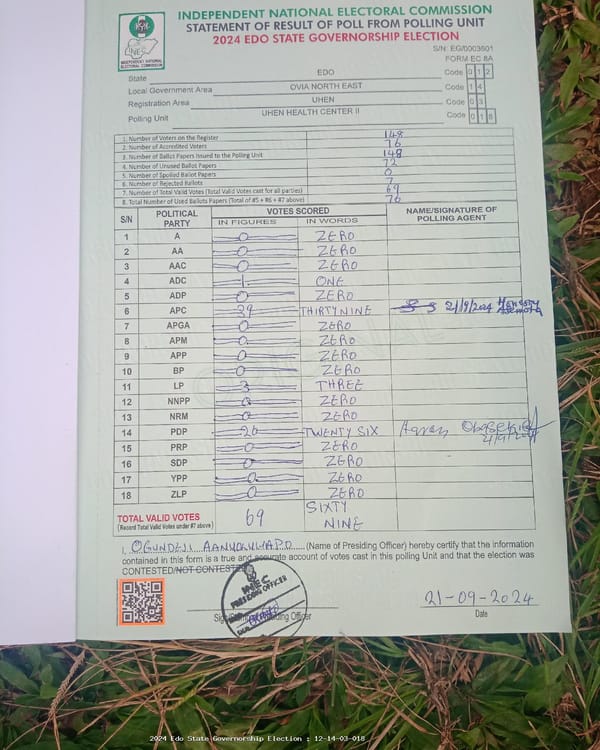 INDEPENDENT NATIONAL ELECTORAL COMMISSION
STATEMENT OF RESULT OF POLL FROM POLLING UNIT
2024 EDO STATE GOVERNORSHIP ELECTION
S/N: EG/0003601
FORM EC 8A
INEC
INDEPENDENT NATIONAL ELECTORAL COMMISSION
State EDO Code 0 1 2
Local Government Area OVIA NORTH EAST Code 1 4
Registration Area UHEN Code 0 3
Polling Unit UHEN HEALTH CENTER II Code 0 1 8
1. Number of Voters on the Register 148
2. Number of Accredited Voters 76
3. Number of Ballot Papers Issued to the Polling Unit 148
4. Number of Unused Ballot Papers 72
5. Number of Spoiled Ballot Papers 0
6. Number of Rejected Ballots 7
7. Number of Total Valid Votes (Total Valid Votes cast for all parties) 69
8. Total Number of Used Ballots Papers (Total of #5 + #6 + #7 above) 76
S/N POLITICAL PARTY VOTES SCORED NAME/SIGNATURE OF POLLING AGENT
IN FIGURES IN WORDS
1 A 0 ZERO
2 AA 0 ZERO
3 AAC 0 ZERO
4 ADC 1 ONE
5 ADP 0 ZERO
6 APC 39 THIRTY NINE 21/9/2024
7 APGA 0 ZERO
8 APM 0 ZERO
9 APP 0 ZERO
10 BP 0 ZERO
11 LP 3 THREE
12 NNPP 0 ZERO
13 NRM 0 ZERO
14 PDP 26 TWENTY SIX
15 PRP 0 ZERO
16 SDP 0 ZERO
17 YPP 0 ZERO
18 ZLP 0 ZERO
TOTAL VALID VOTES 69 SIXTY NINE
(Record Total Valid Votes under #7 above)
I, OGUNDEJI (Name of Presiding Officer) hereby certify that the information
contained in this form is a true and accurate account of votes cast in this polling unit and that the election was
CONTESTED/NOT CONTESTED
INEC
PRESIDING OFFICER
21-09-2024
Date
2024 Edo State Governorship Election : 12-14-03-018